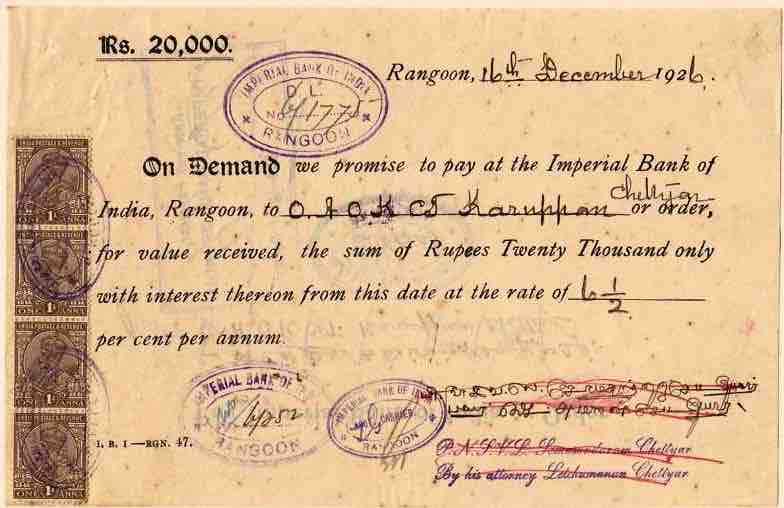 Rs. 20,000.
IMPERIAL BANK OF INDIA
D. L.
No. 6/1775
RANGOON
Rangoon, 16th December 1926.
On Demand we promise to pay at the Imperial Bank of
India, Rangoon, to O. A. O. K. CT Karuppan Chettyar or order,
for value received, the sum of Rupees Twenty Thousand only
with interest thereon from this date at the rate of 6 1/2
per cent per annum.
INDIA POSTAGE & REVENUE
ONE ANNA
ONE ANNA
INDIA POSTAGE & REVENUE
ONE ANNA
ONE ANNA
IMPERIAL BANK OF
RANGOON
IMPERIAL BANK OF INDIA
RANGOON
Chettyar
By his attorney Letchumanan Chettyar
I. B. I.—RGN. 47.